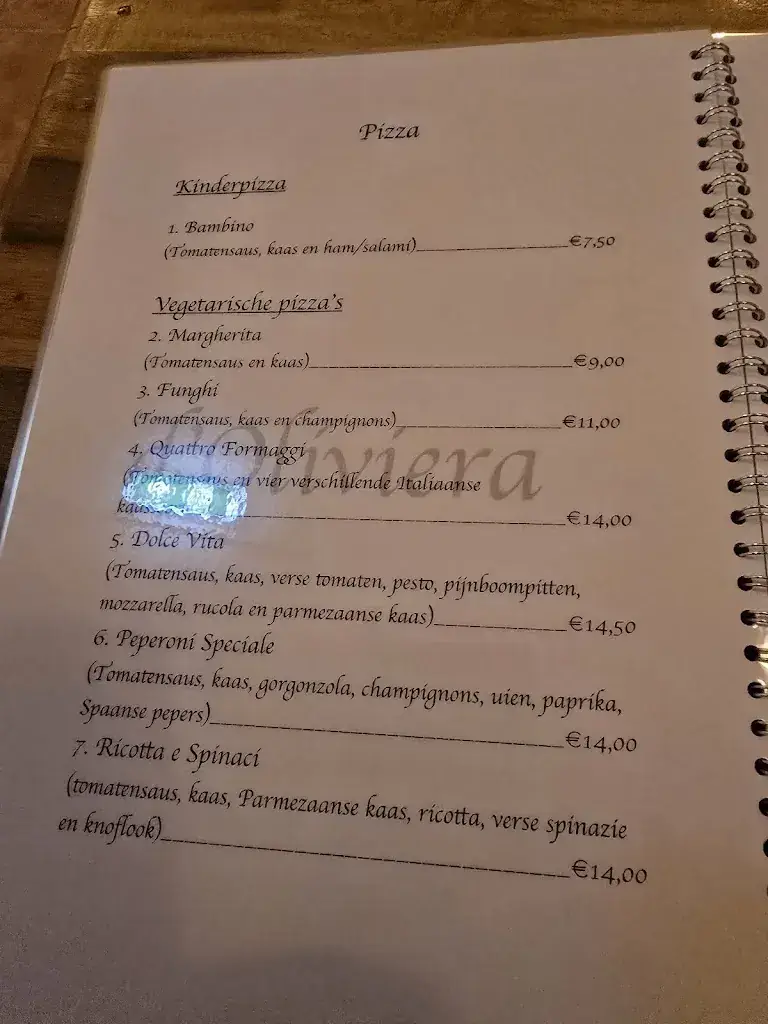 Pizza
Kinderpizza
1. Bambino
(Tomatensaus, kaas en ham/salami)____________€7,50
Vegetarische pizza's
2. Margherita
(Tomatensaus en kaas)____________€9,00
3. Funghi
(Tomatensaus, kaas en champignons)____________€11,00
4. Quattro Formaggi
(Tomatensaus en vier verschillende Italiaanse
____________€14,00
l'Oliviera
5. Dolce Vita
(Tomatensaus, kaas, verse tomaten, pesto, pijnboompitten,
mozzarella, rucola en parmezaanse kaas)____________€14,50
6. Peperoni Speciale
(Tomatensaus, kaas, gorgonzola, champignons, uien, paprika,
Spaanse pepers)____________€14,00
7. Ricotta e Spinaci
(tomatensaus, kaas, Parmezaanse kaas, ricotta, verse spinazie
en knoflook)____________€14,00